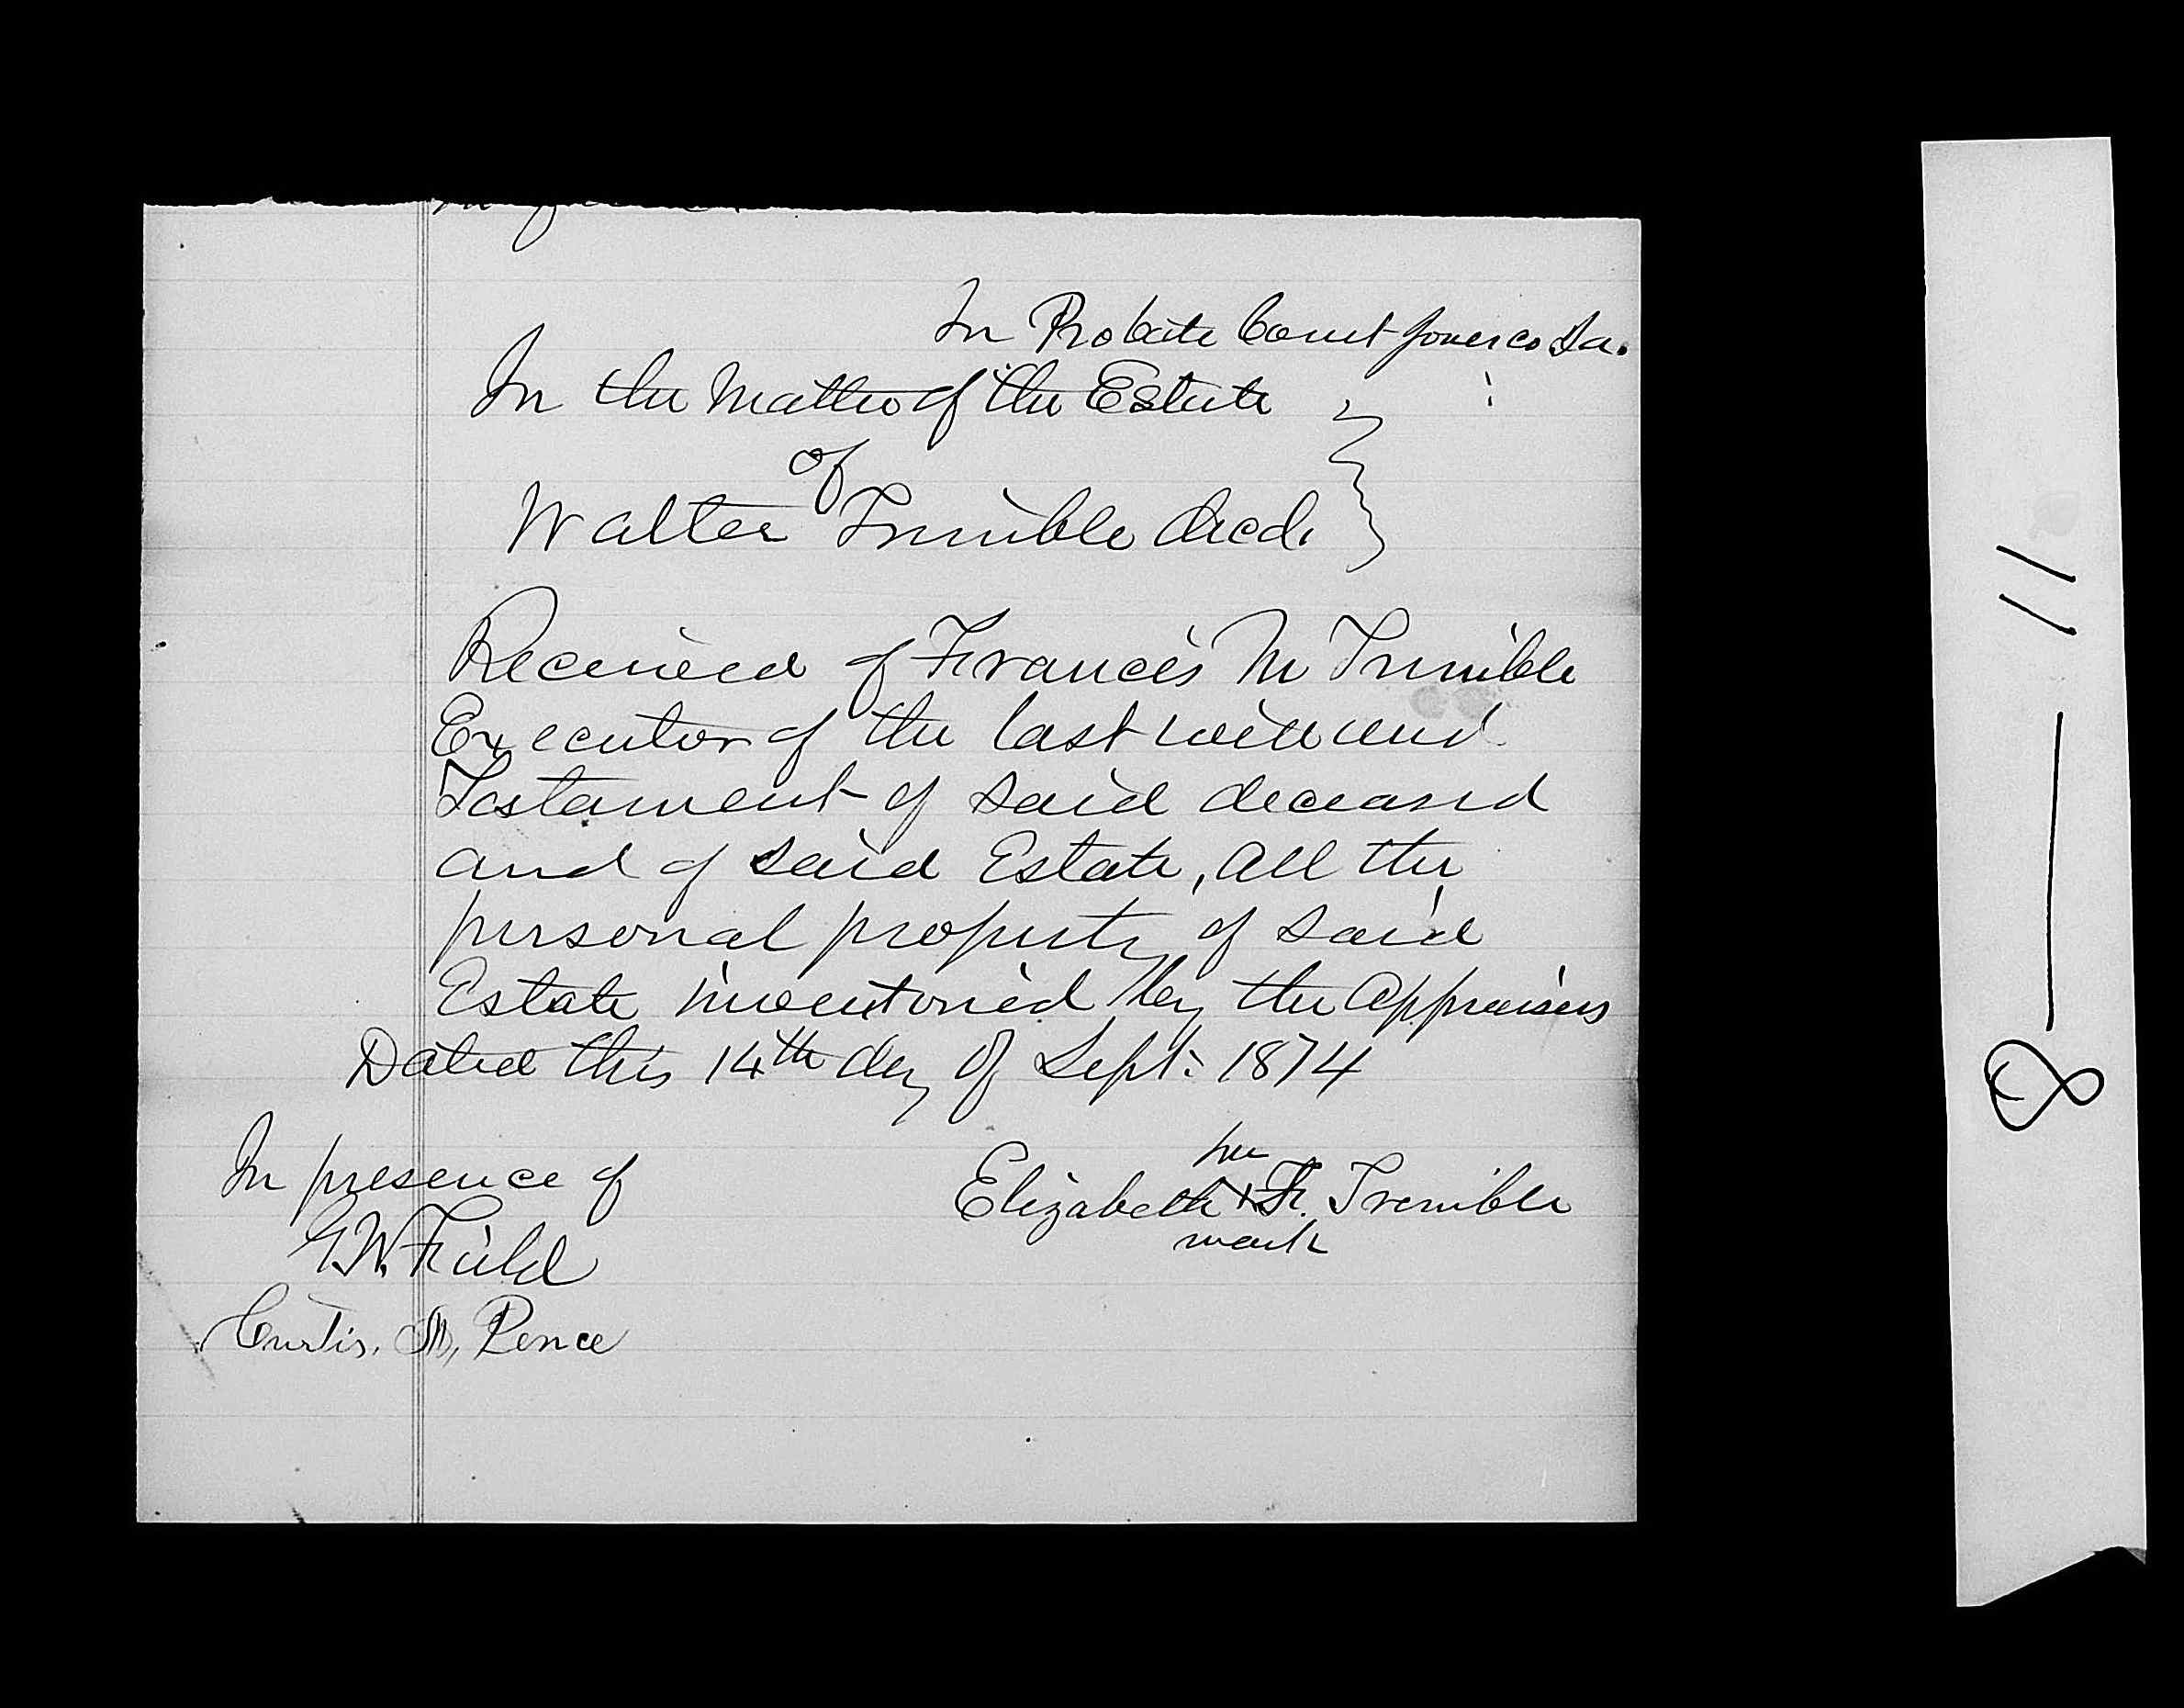 In Probate Court Jones Co Ia.
In the Matter of the Estate
of
Walter Trimble decd.
Received of Francis M Trimble
Executor of the last will and
Testament of said deceasd
and of said Estate, all the
personal property of said
Estate inventoried by the Appraisers
Dated this 14th day of Sept. 1874
In presence of
her
Elizabeth + F. Tremble
mark
G.W. Field
Curtis. Pence
8 — 11